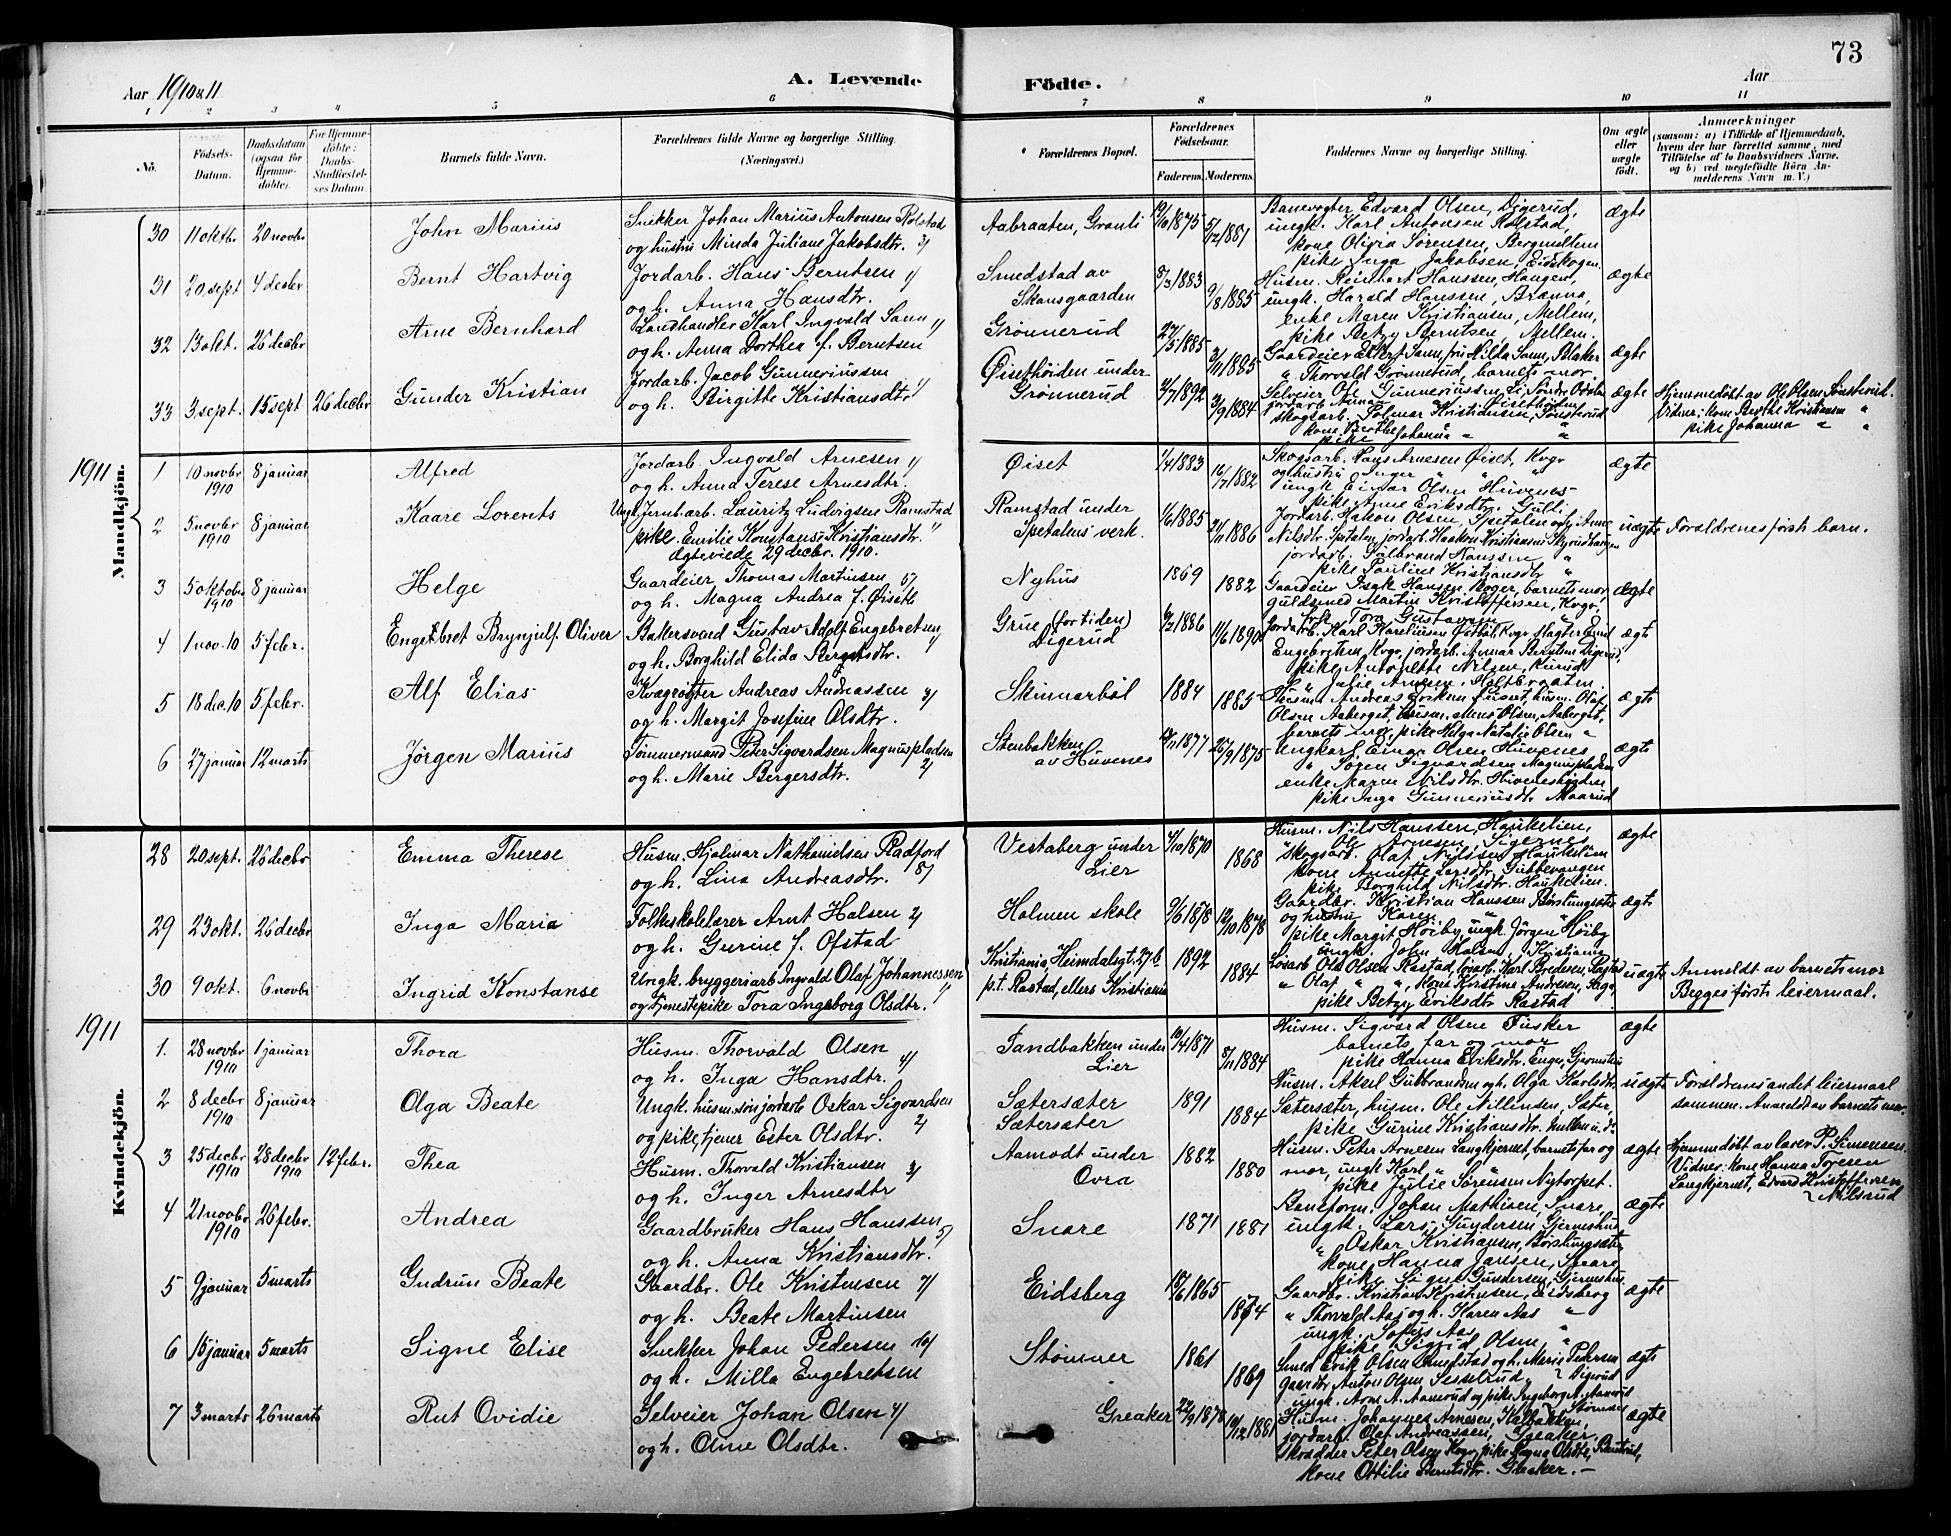 73
Aar 1910 & 11
A. Levende Födte.
Aar
1 2 3 4 5 6 7 8 9 10 11
No.
Födsels-Datum.
Daabsdatum (ogsaa for Hjemmedöbte).
For Hjemmedöbte: Daabs-Stadfæstelses Datum.
Barnets fulde Navn.
Forældrenes fulde Navne og borgerlige Stilling. (Næringsvei.)
Forældrenes Bopæl.
Forældrenes Födselsaar.
Faderens. Moderens.
Faddernes Navne og borgerlige Stilling.
Om ægte eller uægte födt.
Anmærkninger
(saasom: a) i Tilfælde af Hjemmedaab, hvem der har forrettet samme, med Tilföielse af to Daabsvidners Navne, og b) ved uægtefödte Börn Anmelderens Navn m. V.)
Mandkjön.
30 11 oktbr 20 novbr John Marius
Snekker Johan Marius Antonsen Rolstad
og hustru Minda Juliane Jakobsdtr. 3/
Aabraaten, Granli 19/10 1875 5/12 1881
Banevogter Edvard Olsen, Digerud,
ungk. Karl Antonsen Rolstad,
kone Olivia Sørensen, Bergmellem
pike Inga Jakobsen, Eidskogen
ægte
31 20 sept 4 decbr Bernt Hartvig
Jordarb. Hans Berntsen 1/
og h. Anna Hansdtr.
Smedstad av Skansgaarden 5/3 1883 9/8 1885
Husm. Reinhart Hanssen, Haugen,
ungk. Harald Hanssen, Brænna,
enke Maren Kristiansen, Mellem,
pike Betzy Berntsen, Mellem.
ægte
32 13 okt. 26 decbr Arne Bernhard
Landhandler Karl Ingvald Sann 1/
og h. Anna Dorthea f. Berntsen
Grønnerud 27/5 1885 3/11 1885
Gaardeier Ellert Sann, fru Hilda Sann, Blaker
" Thorvald Grønnerud, barnets mor,
ægte
33 3 sept. 15 sept 26 decbr Gunder Kristian
Jordarb. Jacob Gunneriussen 1/
og h. Birgitte Kristiansdtr
Øisethöiden under Grønnerud 2/7 1892 3/9 1884
Selveier Ole Gunneriussen
skogsarb. Palmar Kristiansen, Sønsterud
kone Berthe " "
pike Johanna " "
ægte
Hjemmedøbt av Ole Olsen Sønsterud.
Vidner: kone Berthe Kristiansen "
pike Johanna " "
1911
1 10 novbr 1910 8 januar Alfred
Jordarb. Ingvald Arnesen 1/
og h. Anna Terese Arnesdtr.
Øiset 1/4 1883 16/7 1882
Skogsarb. Hans Arnesen Øiset, Kvgr
og hustru Inger " "
ungk Einar Olsen Huvenes
pike Anne Eriksdtr. Suli
ægte
2 5 novbr 1910 8 januar Kaare Lorents
Ungk. Jernb.arb. Lauritz Ludvigsen Ramstad
pike Emilie Konstanse Kristiansdtr. "
Ægteviede 29 decbr. 1910.
Ramstad under Spetalens verk. 1/6 1885 21/11 1886
Jordarb. Hakon Olsen, Spetalen og h. Anne
Nilsdtr. Spetalen, jordarb. Haakon Kristiansen
jordarb. Palbrand Hanssen "
pike Pauline Kristiansdtr "
uægte Forældrenes første barn.
3 5 oktober 1910 8 januar Helge
Gaardeier Thomas Martinsen 5/
og h. Magna Andrea f. Øiseth
Nyhus 1869 1882
Gaardeier Isak Hansen Roger, barnets mor
guldsmed Martin Kristoffersen, Kvgr,
frk Tora Gustavsen "
ægte
4 1 nov. 10 5 febr. Engelbret Brynjulf Oliver
Bakersvend Gustav Adolf Engebretsen 1/
og h. Borghild Elida Bergetsdtr.
Grue (for tiden) Digerud 6/2 1886 11/6 1890
Jordarb. Karl Kareliusen
Engebretsen Kvgr, jordarb. Annar Berntsen Digerud,
pike Antonette Nilsen, Rierud
" Julie Arnesen, Holtbraaten.
ægte
5 18 dec. 10 5 febr. Alf Elias
Kvægrøgter Andreas Andreassen 3/
og h. Margit Josefine Olsdtr.
Skinnarböl 1884 1885
Husm. Andreas Eriksen Huset, husm. Olaf
Olsen Aaberget, husm. Olsen, Aaberget,
barnets mor, pike Helga Natalie Olsen "
ægte
6 27 januar 12 marts Jörgen Marius
Tømmermand Peter Sigvardsen Magnuspladsen
og h. Marie Bergersdtr. 2/
Stenbakken av Huvenes 1877 27/9 1875
Ungkarl Einar Olsen Huvenes
" Søren Sigvardsen Magnuspladsen
enke Maren Nilsdtr. Huveneshøiden
pike Inga Gunneriusdtr Maarud
ægte
Kvindekjön.
28 20 sept. 26 decbr Emma Therese
Husm. Hjalmar Nathanielsen Radfjord
og h. Lina Andreasdtr. 8/
Vestaberg under Lier 4/10 1870 1868
Husm. Nils Hanssen, Haukelien,
" Ole Arnesen, Sigernes
Skogsarb. Olaf Nilssen Haukelien
kone Annette Larsdtr. Gubbevangen
pike Borghild Nilsdtr. Haukelien.
ægte
29 23 okt. 26 decbr Inga Maria
Folkeskolelærer Arnt Halsen 2/
og h. Gurine f. Ofstad
Holmen skole 9/6 1878 12/10 1878
Gaardbr. Kristian Hanssen Børslungsæter
og hustru Karen " "
pike Margit Høiby, ungk. Jörgen Høiby
ungk. John Halsen, Kristiania
ægte
30 9 okt. 6 novbr Ingrid Konstanse
Ungk. bryggeriarb Ingvald Olaf Johannessen
og tjenestepike Tora Ingeborg Olsdtr. "
Kristiania, Heimdalsgt. 27 b
p.t. Rastad, ellers Kristiania 1892 1884
Løsarb Ole Olsen Rastad, løsarb. Karl Bredesen, Rastad
" Olaf " ", kone Kristine Andresen, Saga,
pike Betzy Eriksdtr Rastad
uægte Anmeldt av barnets mor
Begges første leiermaal.
1911
1. 28 novbr 1910 1 januar Thora
Husm. Thorvald Olsen
og h. Inga Hansdtr. 4/
Sandbakken under Lier 19/4 1871 5/11 1884
Husm. Sigvard Olsen Fusker
barnets far og mor
pike Hanna Eriksdtr. Enger, Gjermshus
ægte
2 8 decbr 1910 8 januar Olga Beate
Ungk. husm.søn jordarb Oskar Sigvardsen
og pike, tjener Ester Olsdtr. 2/
Sætersæter
Sætersæter 1891 1884
Husm. Aksel Gulbrandsen og h. Olga Karlsdtr.
Sætersæter, husm. Ole Nillensen, Sæter,
pike Gurine Kristiansdtr.
uægte Forældrenes andet leiermaal
sammen. Anmeldt av barnets mor.
3 25 decbr 1910 28 decbr 1910 12 febr. Thea
Husm. Thorvald Kristiansen 3/
og h. Inger Arnesdtr
Aamodt under Ovra 1882 1880
Husm. Peter Arnesen Langkjernet, barnets far og
mor, ungk Karl, " "
pike Julie Sørensen Nytorpet.
ægte Hjemmedøbt av lærer P. Simensen.
Vidner: kone Hanna Toresen
Langkjernet, Edvard Kristoffersen
Nilsrud
4 21 novbr 1910 26 febr. Andrea
Gaardbruker Hans Hanssen 5/
og h. Anna Kristiansdtr.
Snare 1871 1881
Baneform. Johan Mathisen, Snare,
ungk. Lars Gundersen Gjermshus
" Oskar Kristiansen, Børslungsæter
kone Hanna Jansen, Snare
pike Signe Gundersen, Gjermshus
ægte
5 9 januar 5 marts Gudrun Beate
Gaardbr. Ole Kristensen 7/
og h. Beate Martinsen
Eidsberg 15/6 1865 1874
Gaardbr. Kristian Kristensen, Eidsberg
" Thorvald Aas og h. Karen Aas "
ungk. Sofus Aas "
pike Sigrid Olsen "
ægte
6 15 januar 5 marts Signe Elise
Snekker Johan Pedersen 10/
og h. Milla Engebretsen
Stömner 1861 1869
Smed Erik Olsen Smedstad og h. Marie Pedersen
gaardbr Anton Olsen Sesselrud, Digerud
ungk. Arne A. Aamerud og pike Ingeborg A. Aamerud
Stömner
ægte
7 3 marts 26 marts Rut Ovidie
Selveier Johan Olsen 4/
og h. Oline Olsdtr.
Greaker 22/9 1878 10/12 1881
Husm. Johannes Arnesen, Kalbakken,
jordarb. Olaf Andreassen, Greaker,
Skrædder Peter Olsen Kvgr, pike Magna Olsdtr, Bentrud,
kone Ottilie Berntsdtr. Greaker. —
ægte